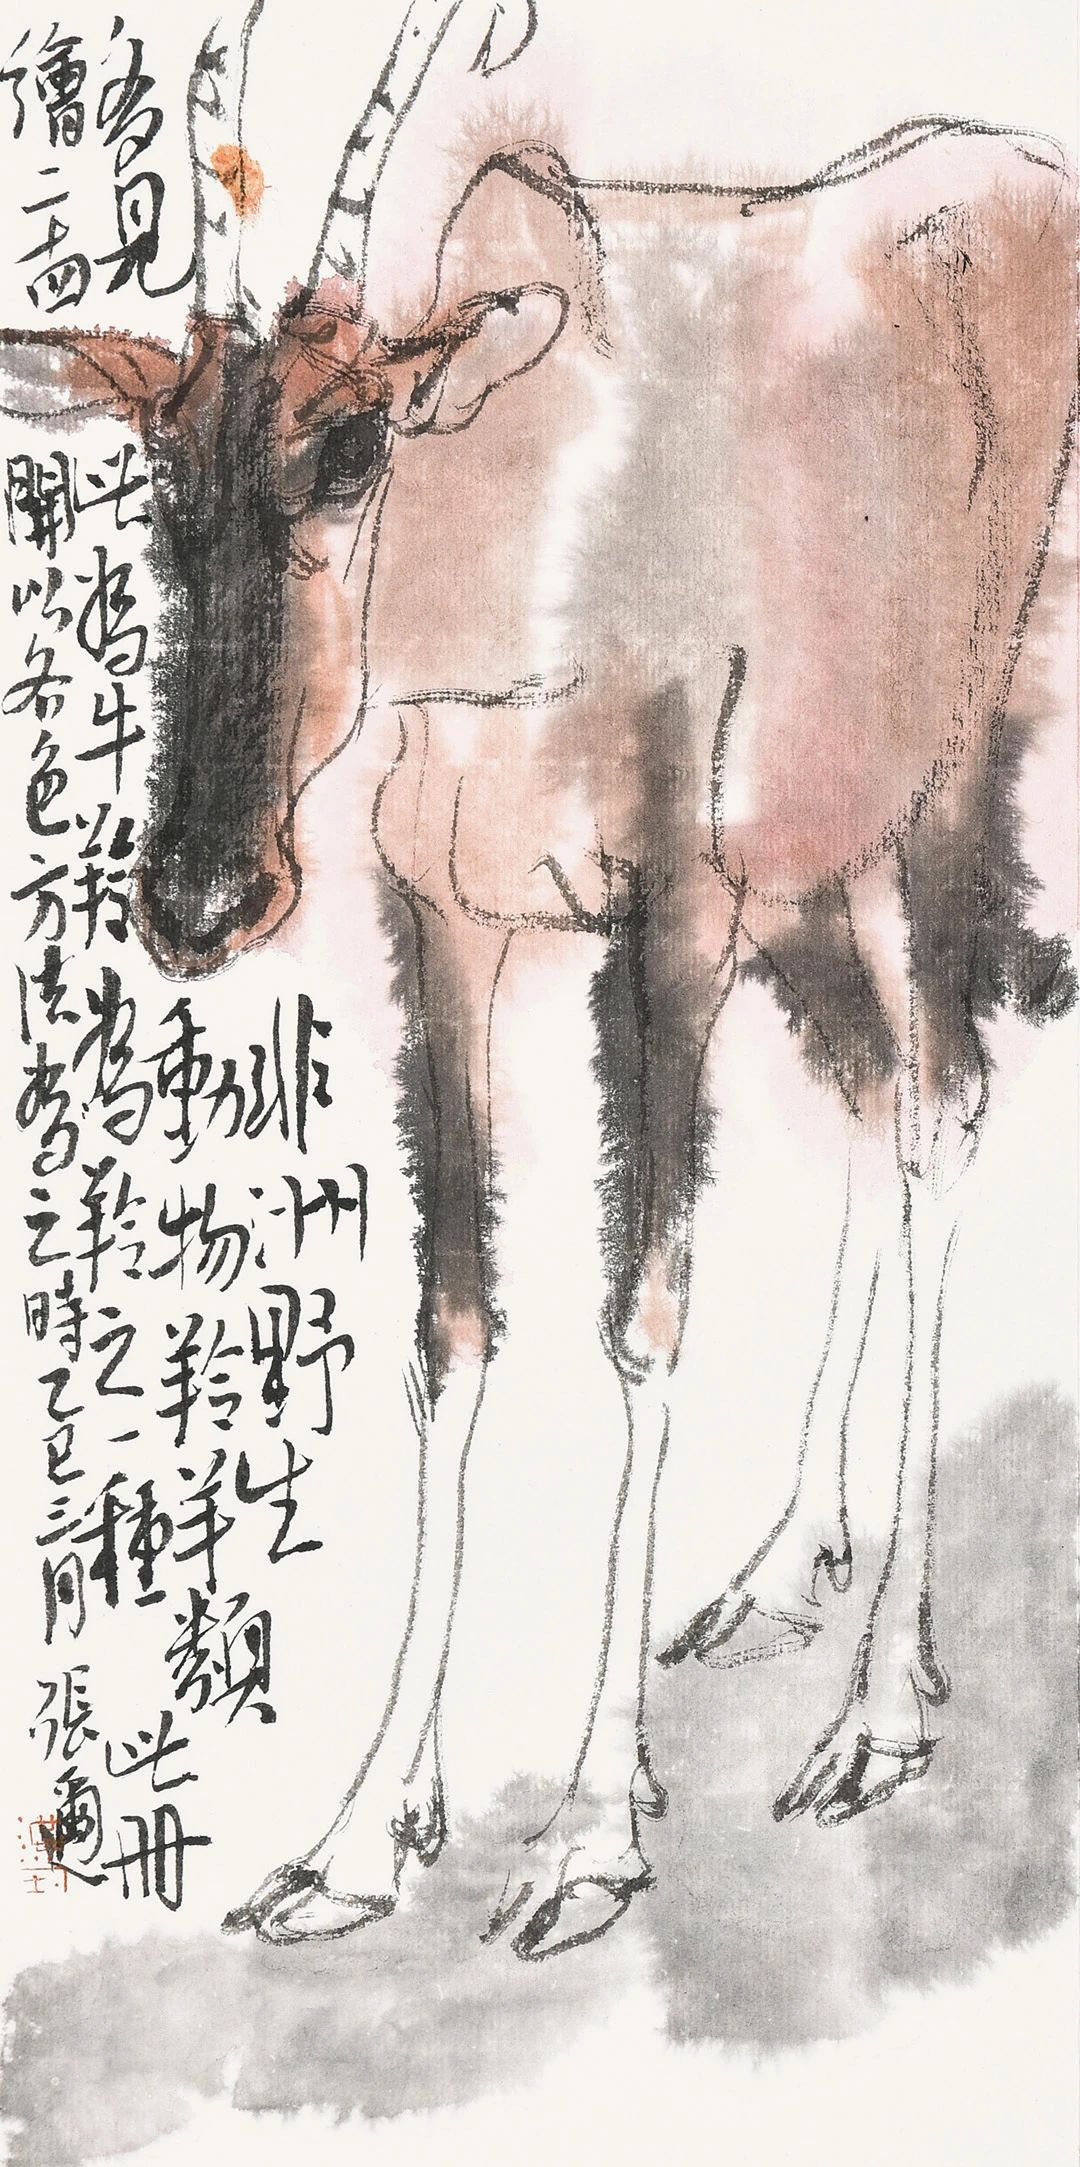 非洲野生
動物羚羊類
多見此為牛羚為羚之一種此冊
繪二十四開以各色方法為之時乙巳三月張邇